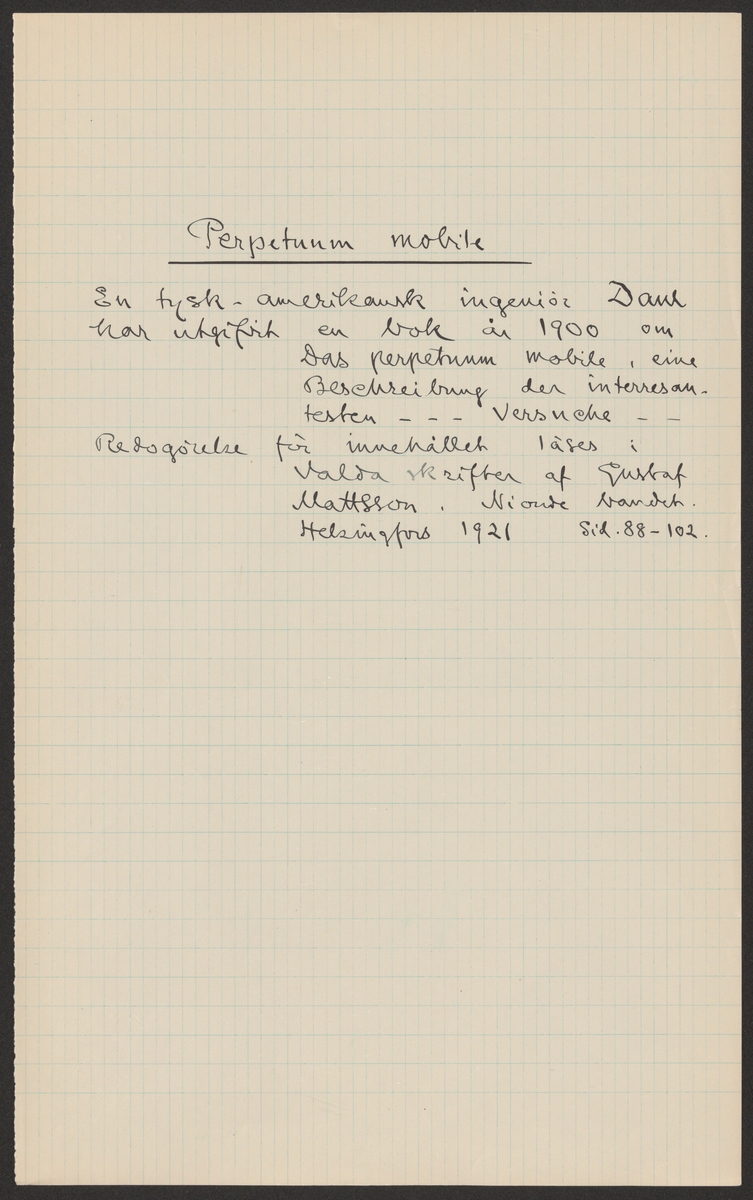 Perpetuum mobile
En tysk-amerikansk ingeniör Daul
har utgifvit en bok år 1900 om
Das perpetuum mobile, eine
Beschreibung der interresan-
testen - - - Versuche - -
Redogörelse för innehållet läses i
Valda skrifter af Gustaf
Mattsson. Nionde bandet.
Helsingfors 1921 Sid. 88-102.